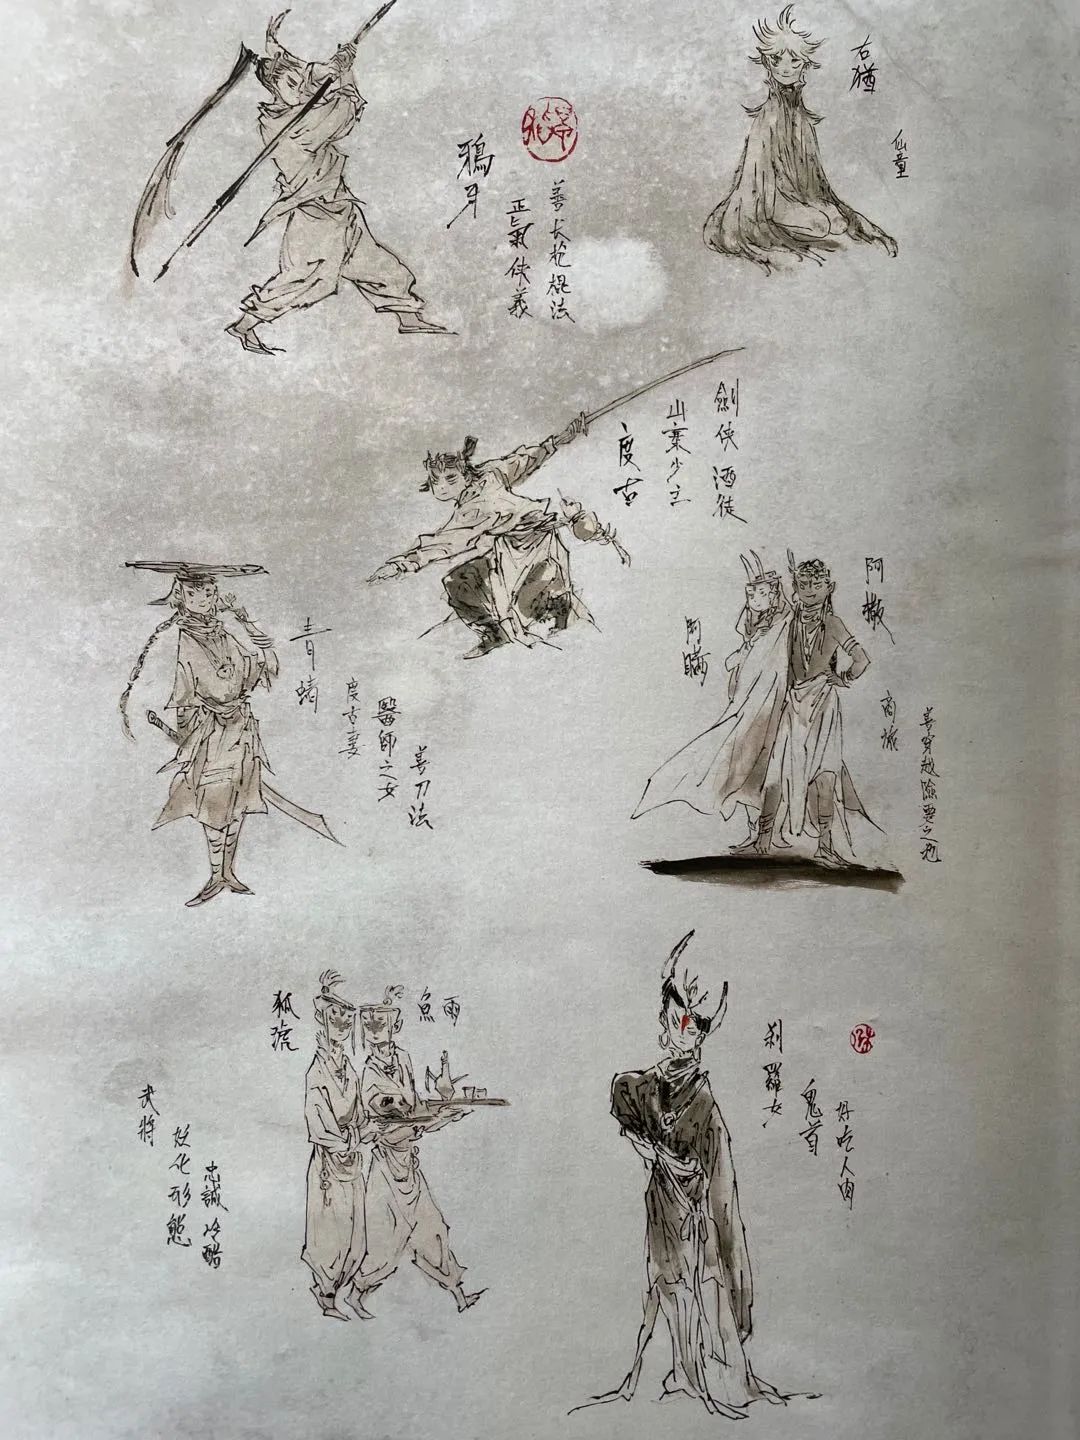 鴉牙
善长枪棍法
正氣侠義
右猶
仙童
劍侠酒徒
山寨少主
度古
青蜻
度古妻
醫師之女
善刀法
阿瞞
阿撒
商旅
善穿越險要之地
狐琥
魚雨
武將
妖化形態
忠誠冷酷
刹羅女
鬼首
好吃人肉